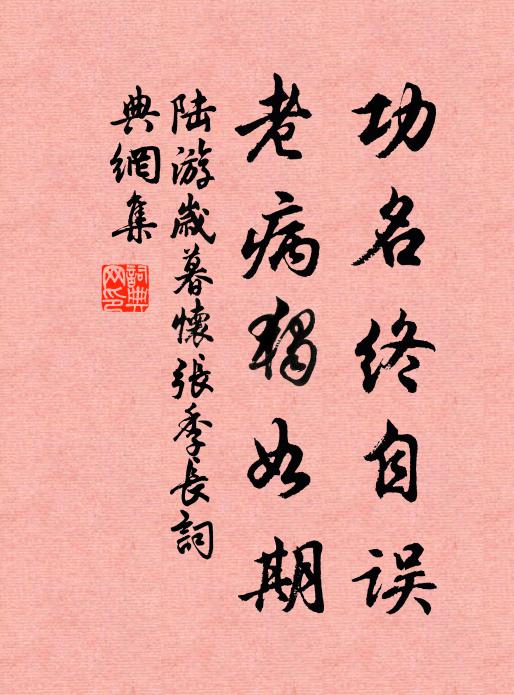 功名终自误
老病独如期
陆游歳暮懷張季长詞
典網集
詞典
网印